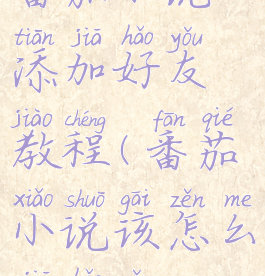 tiān jiā hǎo yǒu
添加好友
jiào chéng fān qié
教程(番茄
xiǎo shuō gāi zěn me
小说该怎么